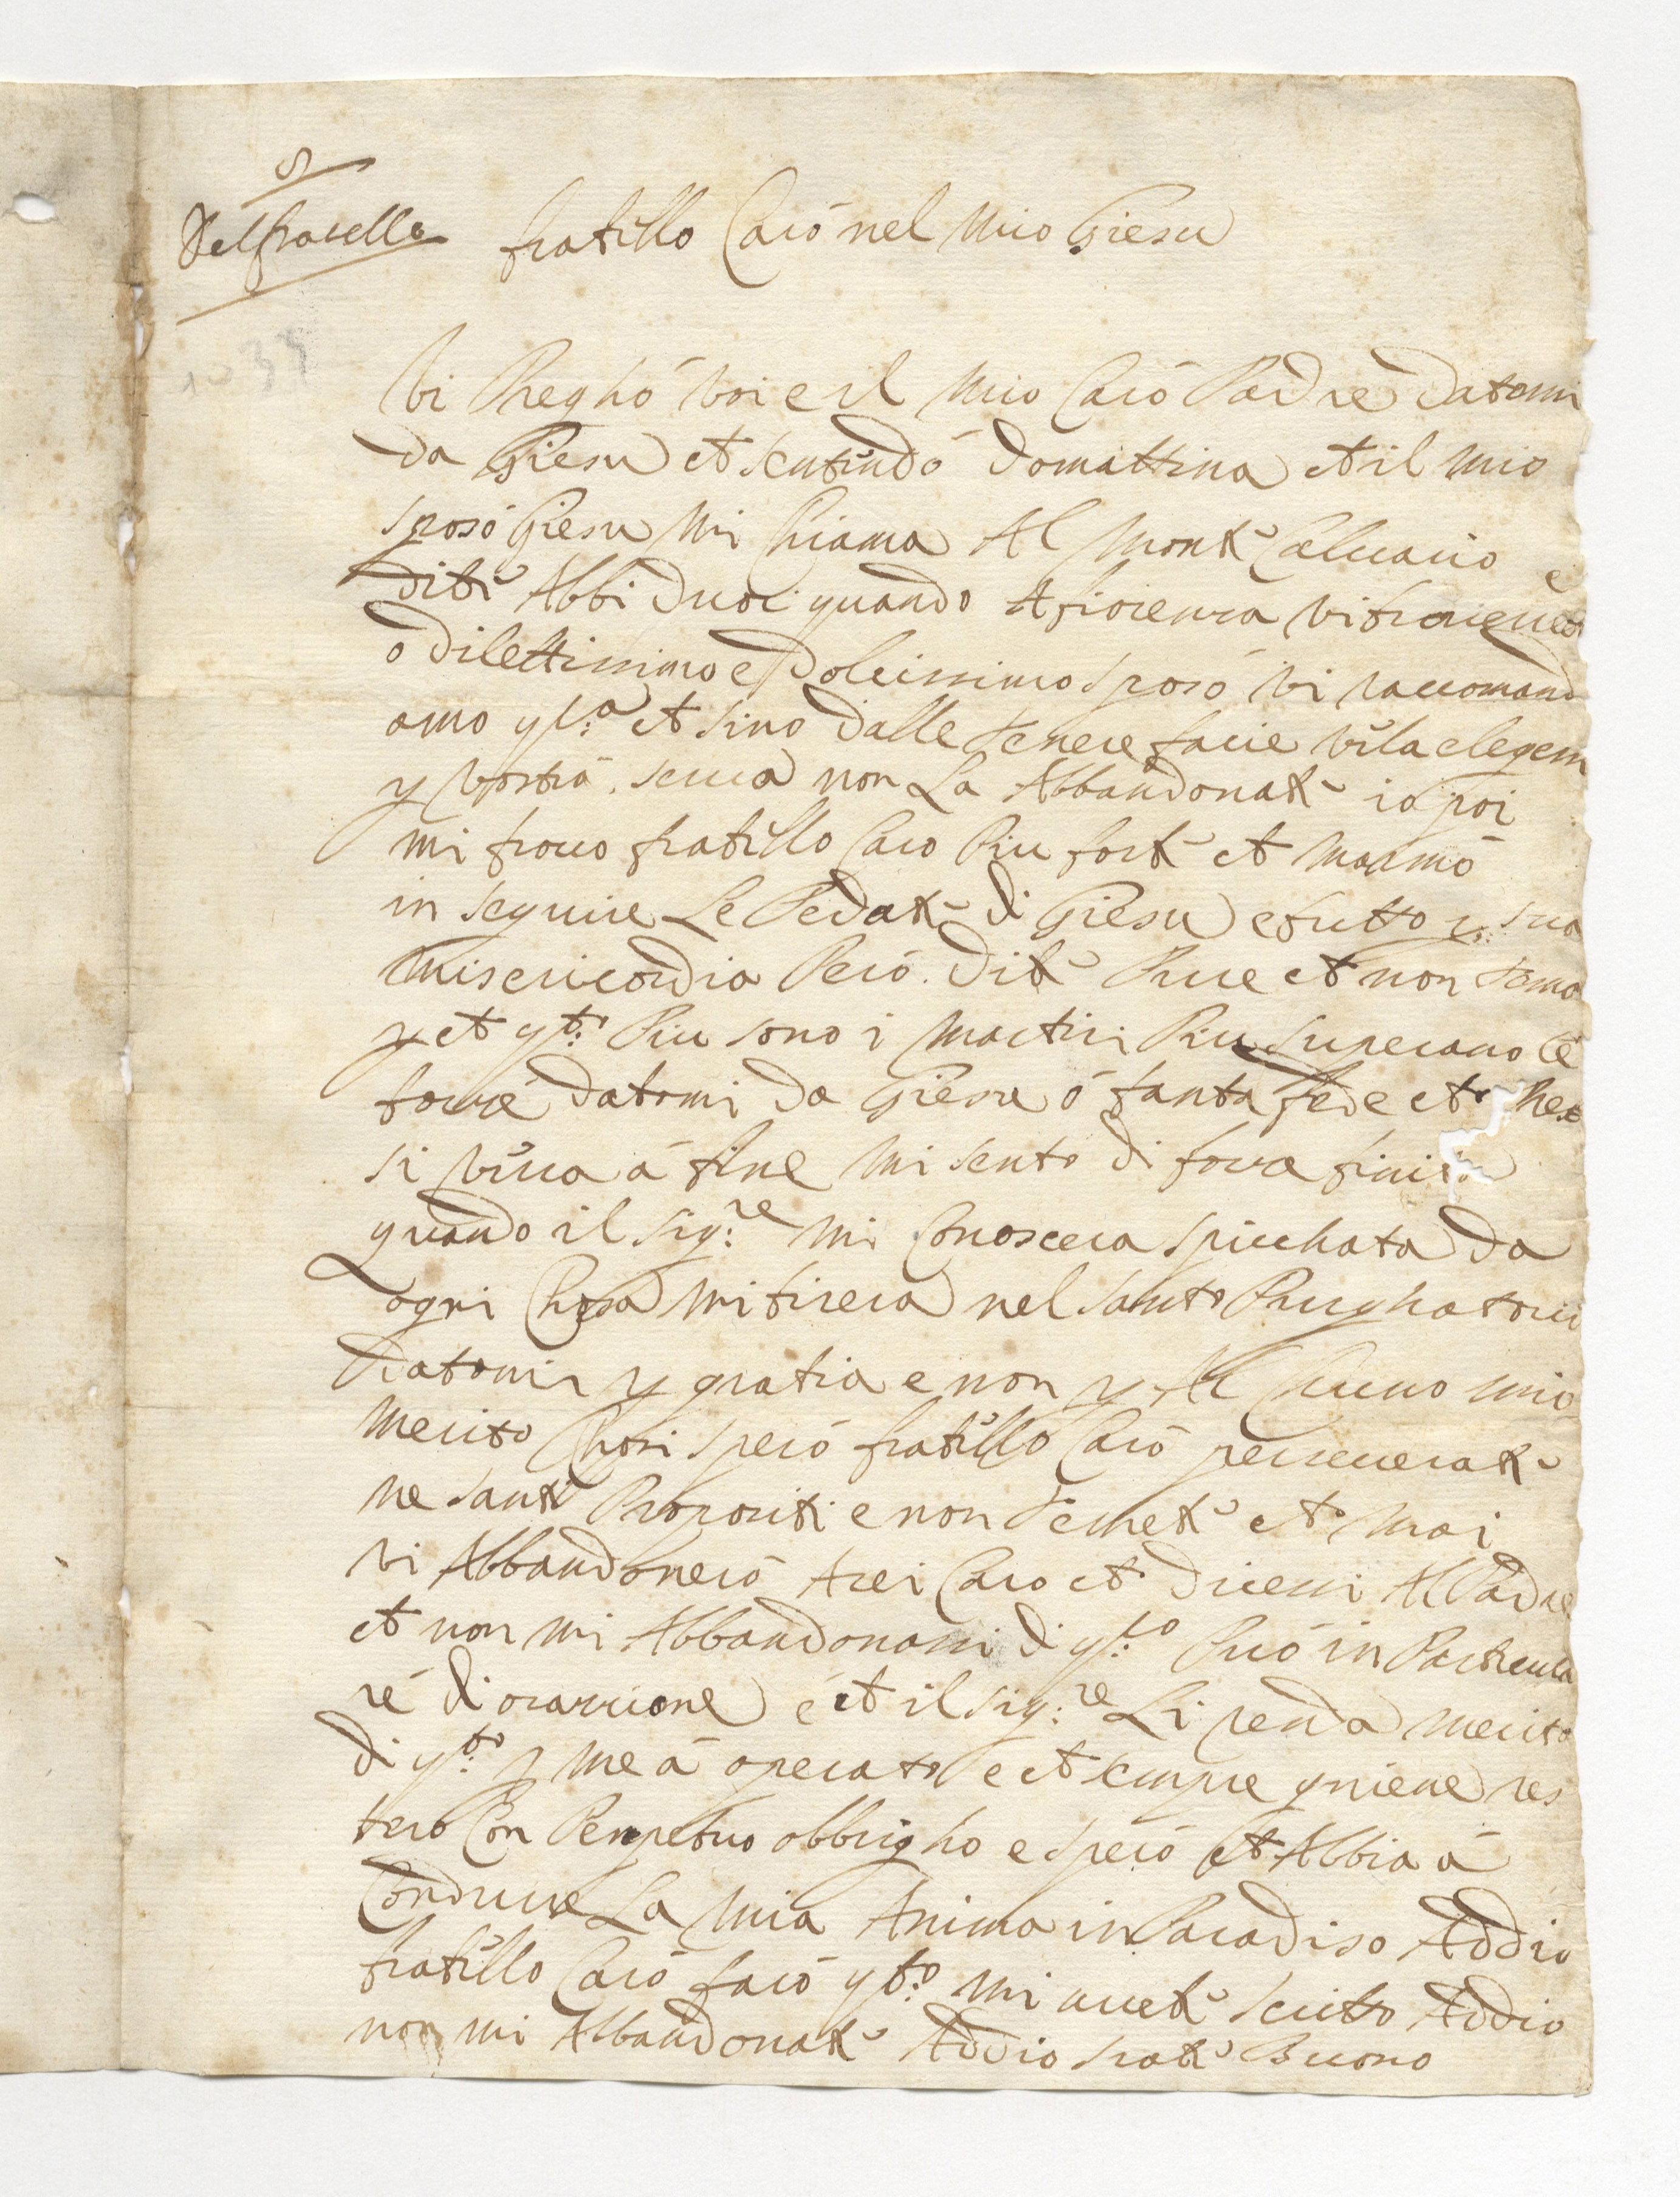 S
Del fratello
fratello Caró nel Mio Giesu
1035
Vi Preghó voi e il Mio Caró Padre datomi
da Giesu et sentendó domattina et il Mio
sposó Giesu Mi Chiama Al Monte Caluario e
dite Abbi duoi quando A fiorenza vi
o dilettissimo e dolcissimo sposó vi raccomand
amo qta et sino dalle tenere facie ve la elegem
p vostrá serua non La Abbandonate io poi
mi trouo fratello Caro Piu forte et Maimó
in seguire Le Pedate di Giesu e tutto p sua
Misericordia Peró dite Pure et non tema
p et qto Piu sono i Martiri Piu superano le
forze datomi da Giesu ó tanta fede et
si viua á fine Mi sento di forze finire
quando il Sig:re Mi Conoscera spicchata da
ogni Chosa Mi tirera nel Santo Purghatorio
datomi p gratia e non p Al Cuno mio
Merito Chosi speró fratello Caró perseuerate
ne santi Propositi e non temete et Mai
vi Abbandoneró Arei Caro et dicessi Al Padre
et non mi Abbandonassi di qto Puó in Particula
ré di orazzione é et il Sig:re Li renda Merito
di qto p Me á operato e et sempre gniene res
teró Con Perpetuo obbrigho e speró et Abbia á
Condurre La Mia Anima in Paradiso Addio
fratello Caró faró qto Mi auete scritto Addio
non mi Abbandonate Addio frate Buono